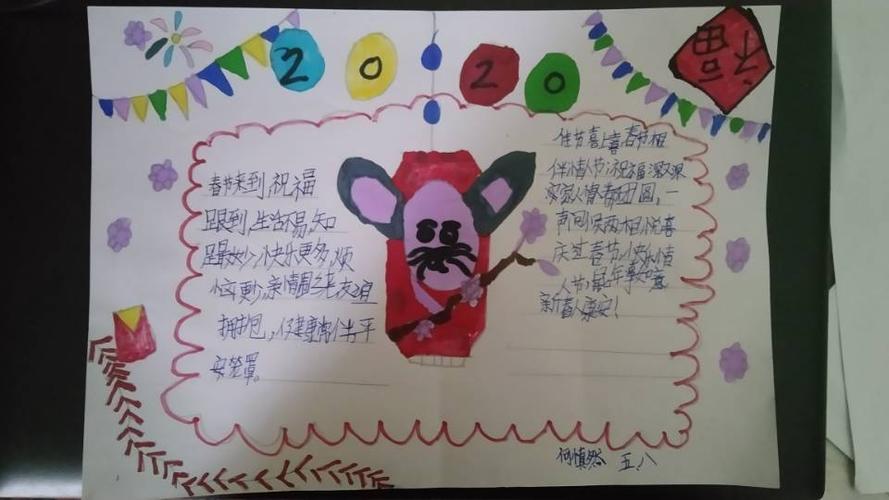 2020
福
春节来到,祝福
跟到,生活不易,知
足最妙,快乐更多,烦
恼更少,亲情围绕,友谊
拥抱,健康常伴,平
安笼罩。
佳节喜上喜春节相
伴情人节,祝福深深
家家人情都团圆,一
声问候两相悦喜
庆过春节,快乐情
人节,鼠年事如意
新春人康安!
何慎然 五.八